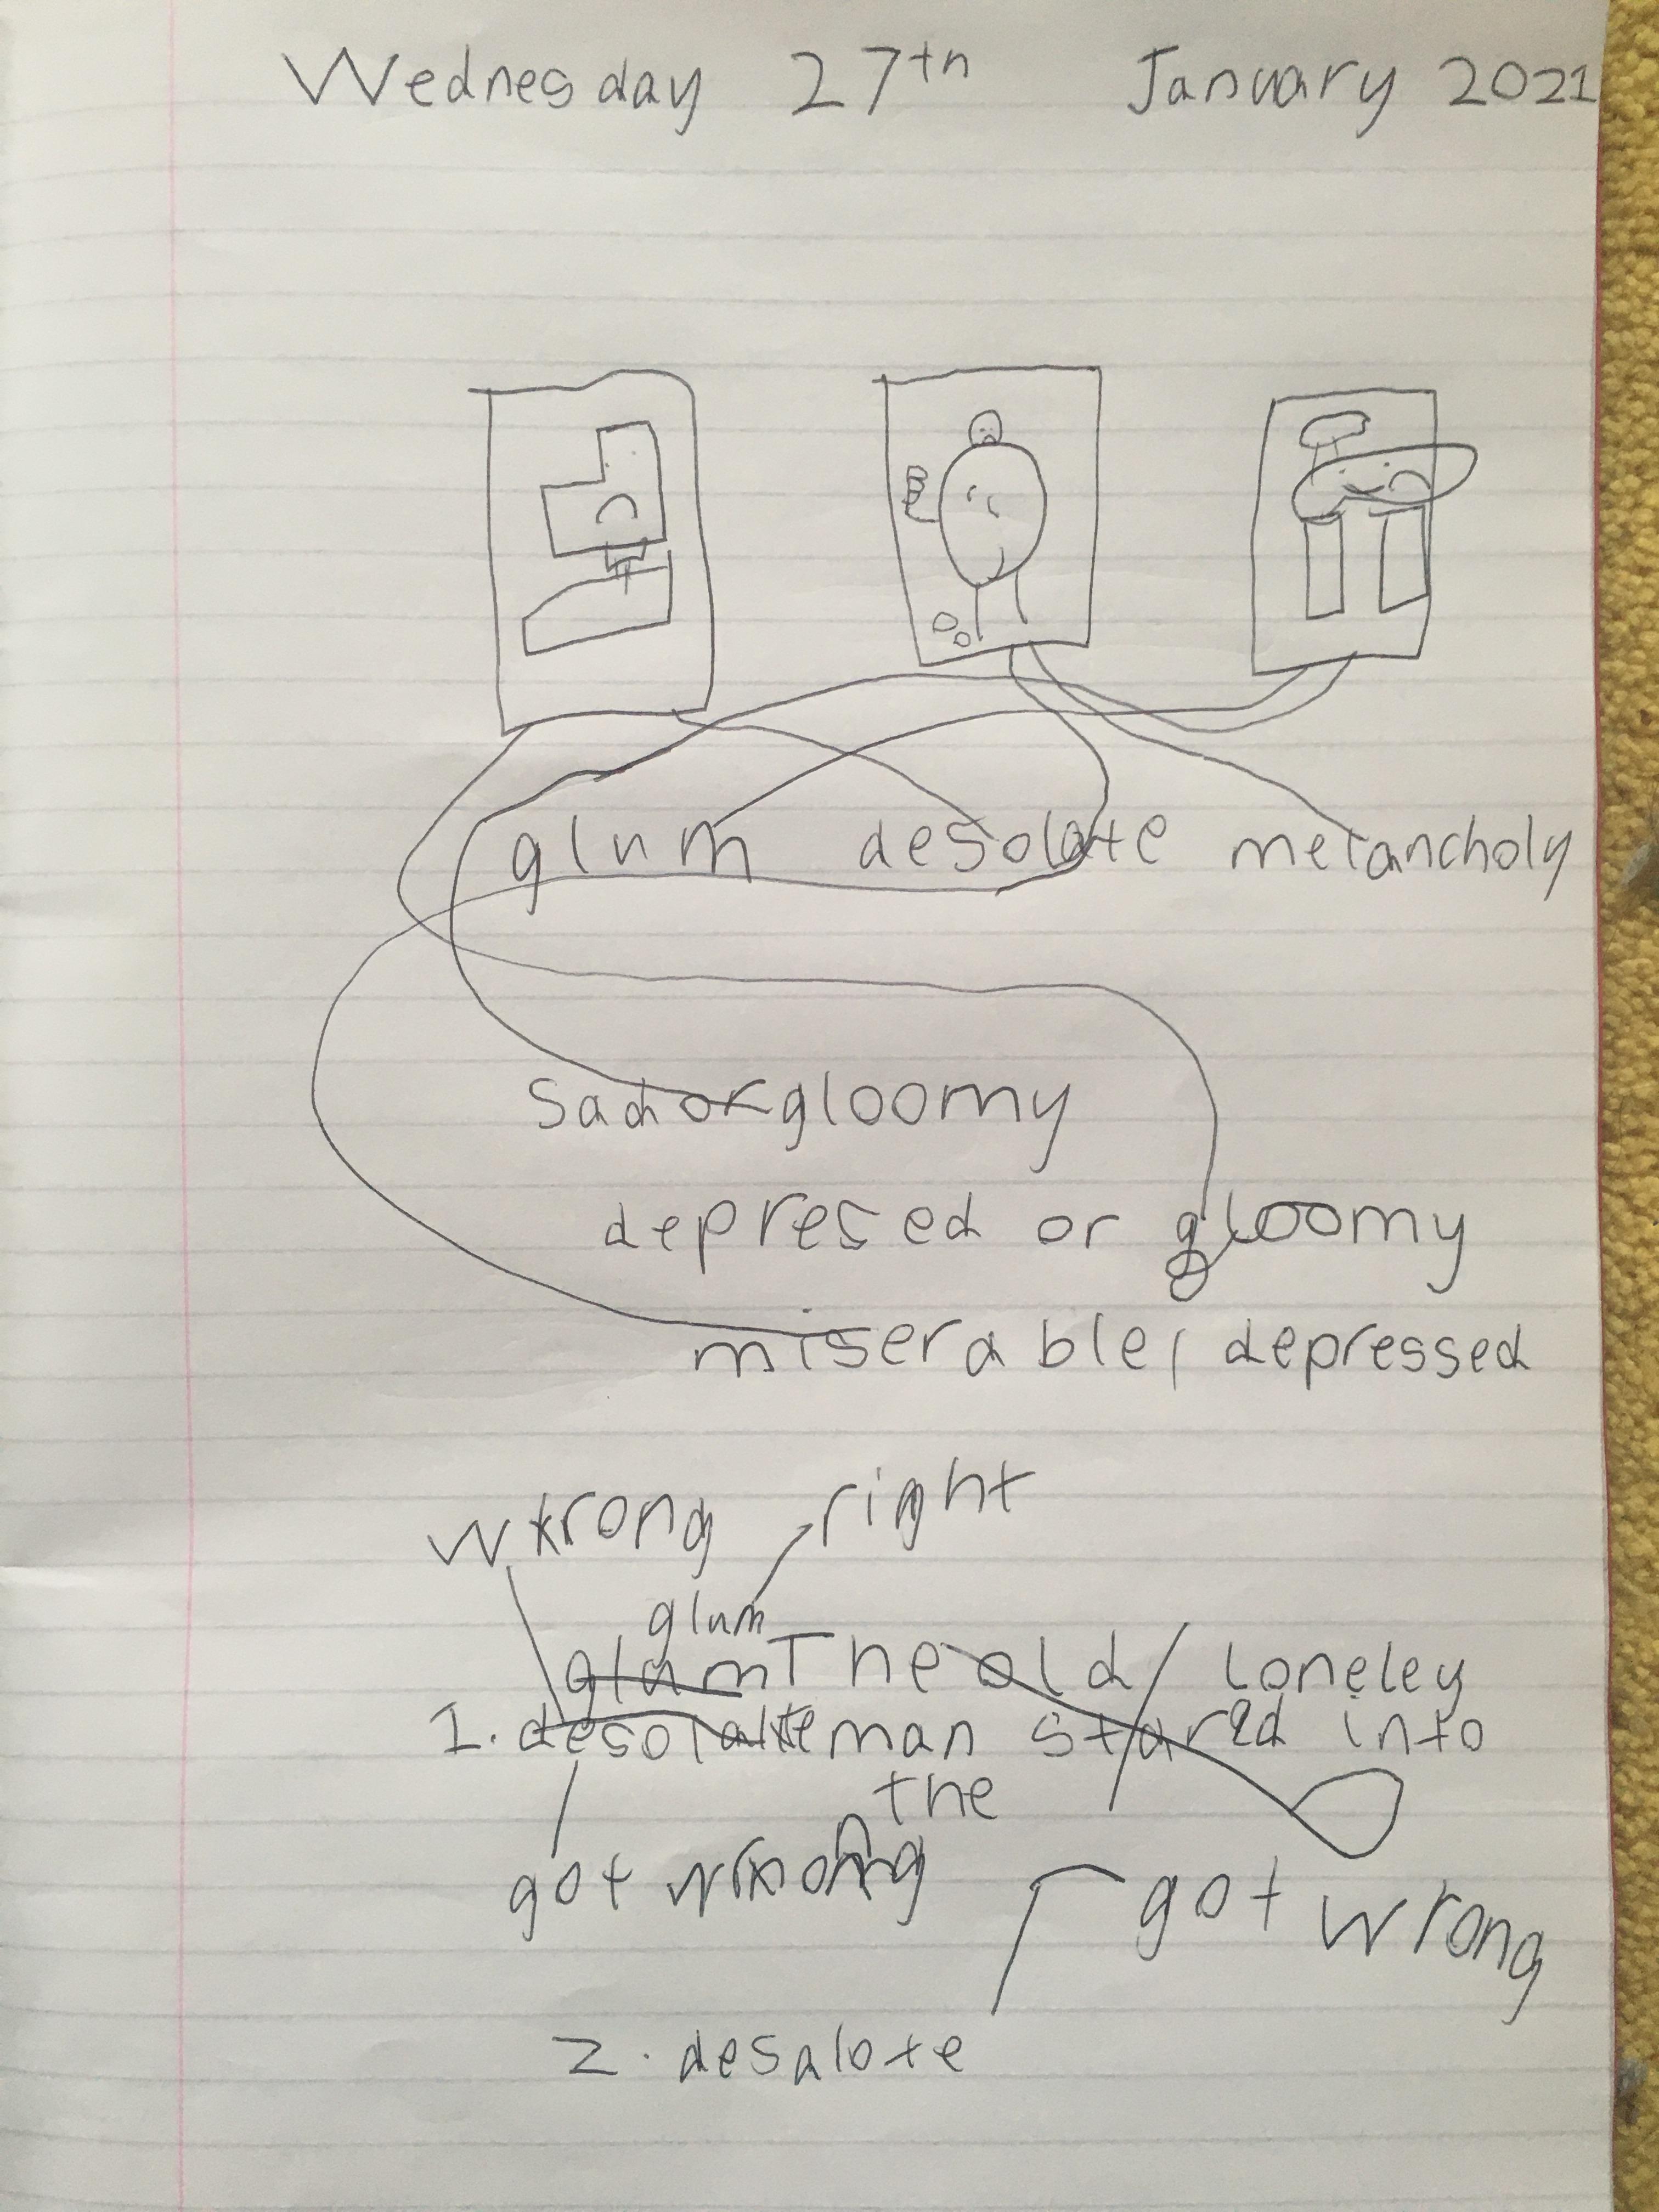 Wednesday 27th January 2021
glum desolate melancholy
Sad or gloomy
depresed or gloomy
miserable, depressed
wrong right
glum
glum The old / Loneley
1. desolate man stared into
the
got wrong
got wrong
2. desalote